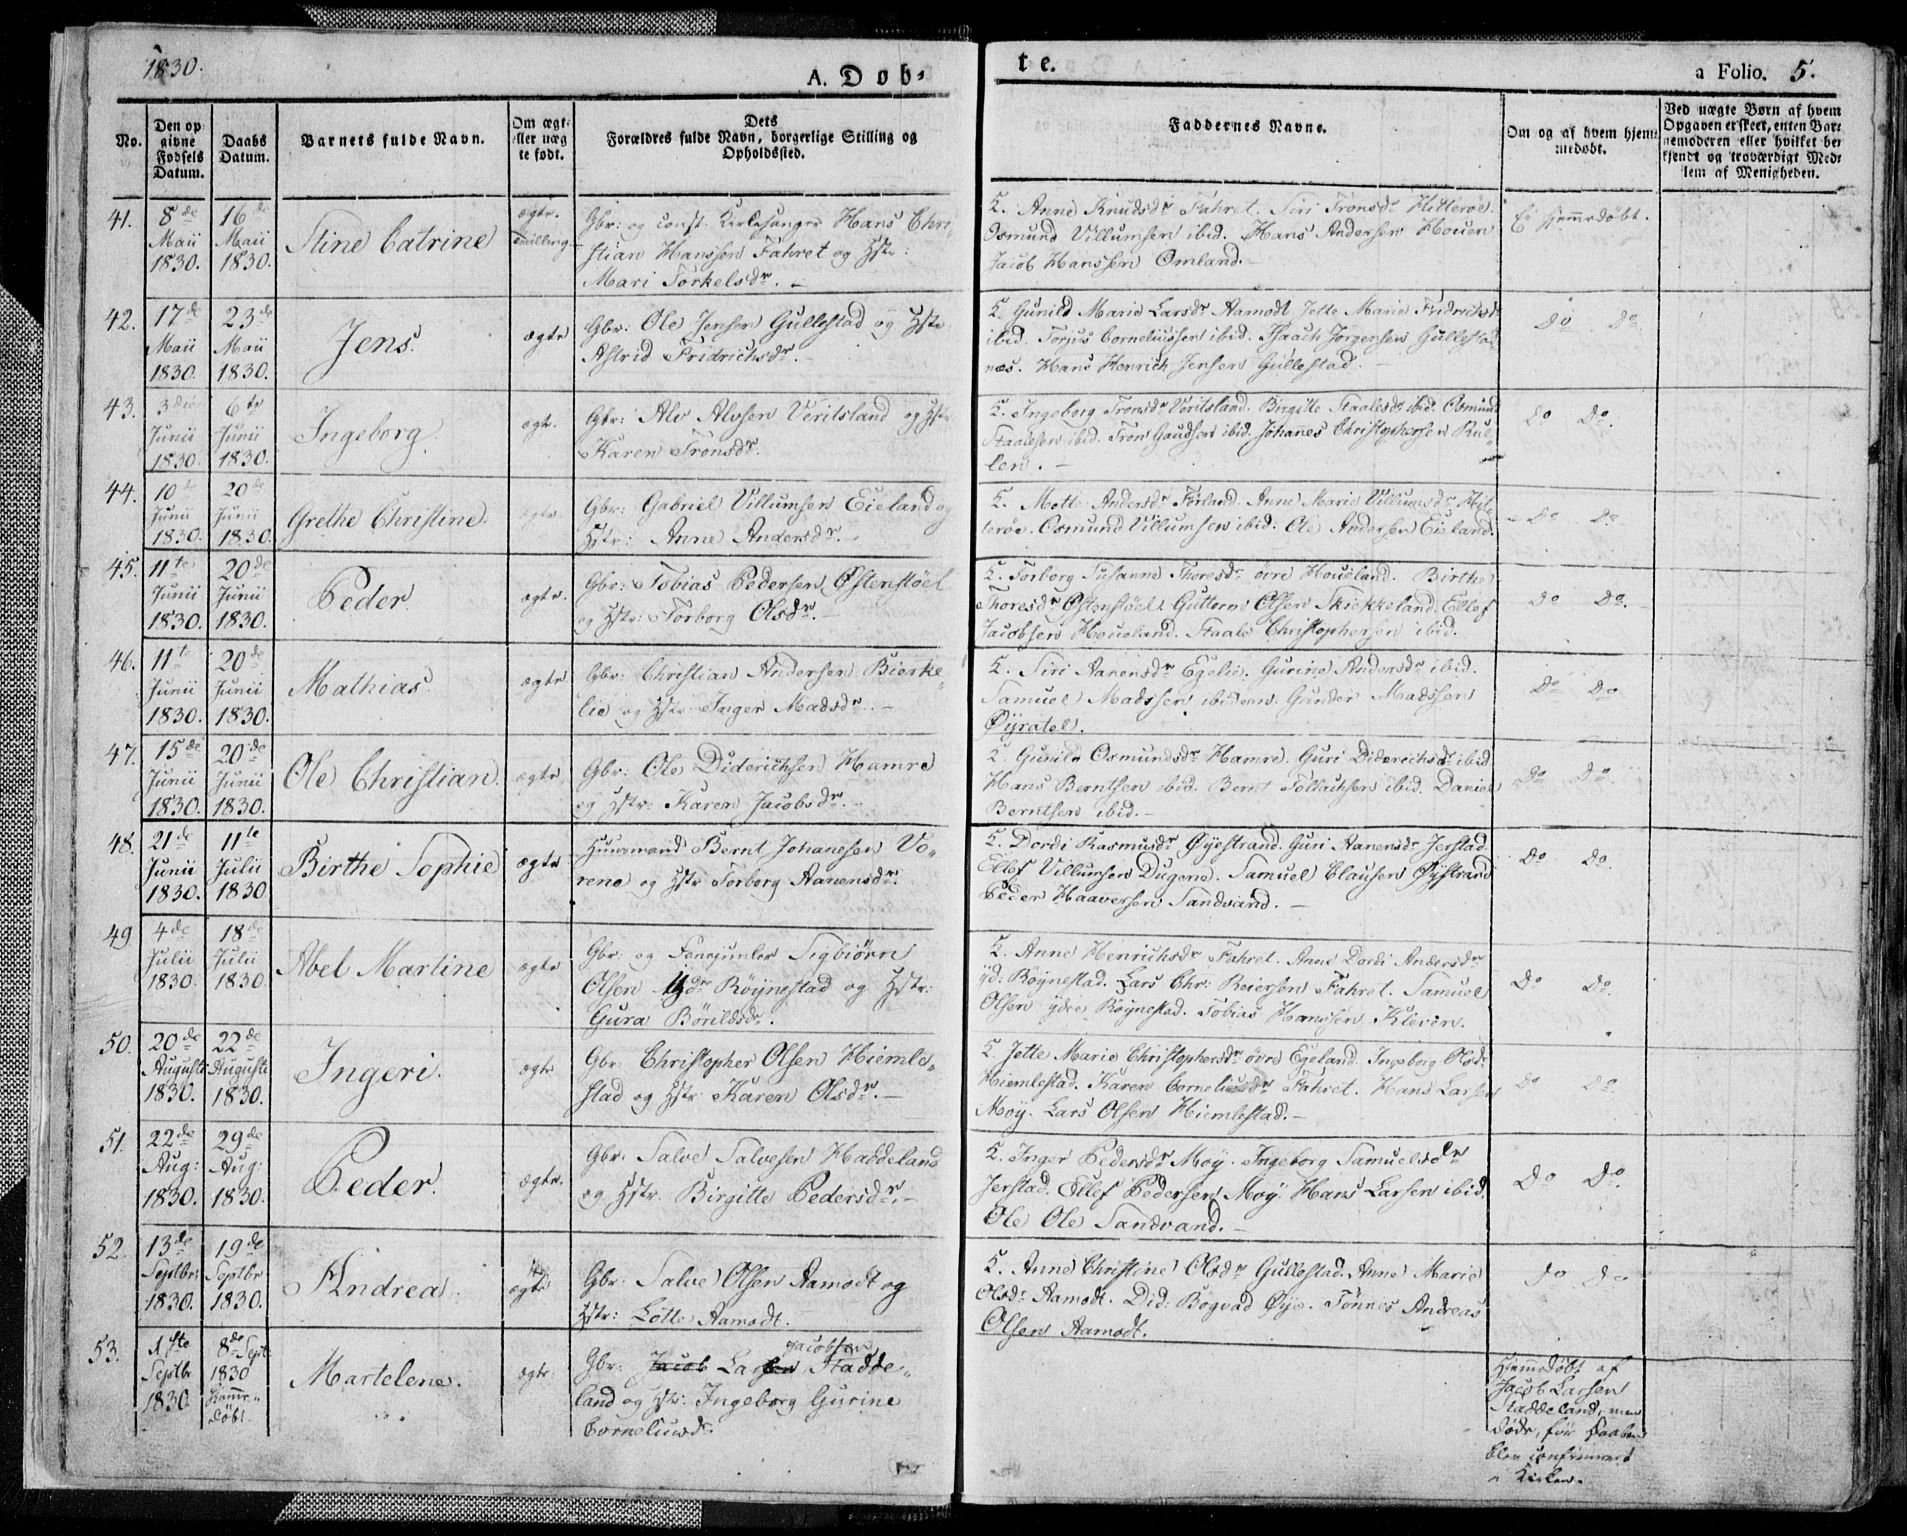 1830.
A. Døb-
te.
a Folio. 5.
No.
Den op
givne
Fødsels
Datum.
Daabs
Datum.
Barnets fulde Navn.
Om ægt-
eller uæg
te født.
Dets
Forældres fulde Navn, borgerlige Stilling og
Opholdssted.
Faddernes Navne.
Om og af hvem hjem-
medøbt.
Ved uægte Børn af hvem
Opgaven er skeet, enten Bar-
nemoderen eller hvilket be-
kjendt og troværdigt Med-
lem af Menigheden.
41.
8de
Maii
1830.
16de
Maii
1830.
Stine Catrine
ægte.
Tvilling
Gbr: og const. Kirkesanger Hans Chri
stian Hanssen Fahret og Hstr:
Mari Torkelsdr. -
K. Anne Knudsdr Fahret. Siri Tronsdr Hitterøe.
Osmund Villumsen ibid. Hans Andersen Houen
Jacob Hanssen Omland.-
Er hjemmedøbt.
42.
17de
Maii
1830.
23de
Maii
1830.
Jens.
ægte
Gbr: Ole Jensen Gullestad og Hstr.
Astrid Fridrichsdr.-
K. Gunild Marie Larsdr Aamodt Jette Marie Fridrichsd.
ibid. Torjus Corneliussen ibid. Isaach Jørgensen Gullestad
næs. Hans Henrich Jensen Gullestad.
Do Do
43.
3die
Junii
1830.
6te
Junii
1830.
Ingeborg.
ægte.
Gbr: Alv Alvsen Veritsland og Hstr
Karen Tronsdr.
K. Ingeborg Tronsdr Veritsland. Birgitte Staalesdr ibid. Osmund
Staalesen ibid. Tron Gaudsen ibid. Johanes Christophersen Rud-
len. -
Do Do.
44.
10de
Junii
1830.
20de
Junii
1830.
Grethe Christine.
ægte.
Gbr: Gabriel Villumsen Eieland og
Hstr: Anne Andersdr.-
K. Motte Andersdr Førland. Anne Marie Villumsdr Hit-
terøe. Osmund Villumsen ibid. Ole Andersen Eieland.
Do Do
45.
11te
Junii
1830.
20de
Junii
1830.
Peder
ægte.
Gbr: Tobias Pedersen Østenstøel
og Hstr: Torborg Olsdr.-
K. Torborg Susanne Thoresdr øvre Houeland. Birthe
Thoresdr Østenstøel. Guttorm Olsen Skiekkeland. Ellef
Jacobsen Houeland. Staale Christophersen ibid.
Do Do.
46.
11te
Junii
1830.
20de
Junii
1830.
Mathias.
ægte
Gbr: Christian Andersen Bierke-
lie og Hstr: Inger Madsdr.-
K. Siri Aanensdr Egelie. Gurine Andersdr ibid.
Samuel Madssen ibidem. Gunder Madssen
Øyratel.
Do Do
47.
15de
Junii
1830.
20de
Junii
1830.
Ole Christian.
ægte
Gbr: Ole Diderichsen Hamre
og Hstr: Karen Jacobsdr.-
K. Gunild Osmundsdr Hamre. Guri Diderichsdr ibid
Hans Berntsen ibid. Bernt Tollachsen ibid. Daniel
Berntsen ibid.-
Do Do.
48.
21de
Junii
1830.
11te
Julii
1830
Birthe Sophie
ægte
Huusmand Bernt Johanesen Vo-
rene og Hstr Torborg Aanensdr.
K. Dordi Rasmusdr Øyestrand. Guri Aanensdr Jerstad.
Ellef Villumsen Dugene. Samuel Clausen Øystrand
Peder Haaversen Sandvand. -
Do Do.
49
4de
Julii
1830.
18de
Julii
1830
Abel Martine
ægte
Gbr: og Fanejunker Sigbiørn
Olsen Ydre Røynestad og Hstr:
Gura Børildsdr.
K. Anne Henrichsdr Fahret. Anne Dordi Andersdr
yd: Røynestad. Lars Chr: Reiersen Fahret. Samuel
Olsen ydre Røynestad. Tobias Hanssen Kleven.
Do Do.
50.
20de
Augusti
1830.
22de
Augusti
1830.
Ingeri.
ægte
Gbr: Christopher Olsen Hiemle-
stad og Hstr: Karen Olsdr.-
K. Jette Marie Christophersdr øvre Egeland. Ingeborg Olsdr
Hiemlestad. Karen Corneliusdr Fahret. Hans Larsen
Moy. Lars Olsen Hiemlestad.-
Do Do.
51.
22de
Aug:
1830.
29de
Aug:
1830.
Peder.
ægte.
Gbr: Salve Salvesen Haddeland
og Hstr. Birgitte Pedersdr.-
K. Inger Pedersdr Moy. Ingeborg Samuelsdr
Jerstad. Ellef Pedersen Moy. Hans Larsen ibid.
Ole Ole Sandvand.-
Do Do.
52.
13de
Septbr:
1830.
19de
Septbr
1830.
Andrea.
ægte
Gbr: Salve Olsen Aamodt og
Hstr: Lotte Aamodt.
K. Anne Christine Olsdr Gullestad. Anne Marie
Olsdr Aamodt. Did: Bogvad Øye. Tønnes Andreas
Olsen Aamodt.
Do Do
53.
1ste
Septbr
1830.
8de Sept
1830
Hjemme-
døbt.
Martelene.
ægte.
Gbr: Jacob Larsen Jacobsen Stadde-
land og Hstr: Ingeborg Gurine
Corneliusdr.
Hjemmedøbt af
Jacob Larsen
Staddeland, men
døde, før Daaben
blev confirmert
i Kirken.